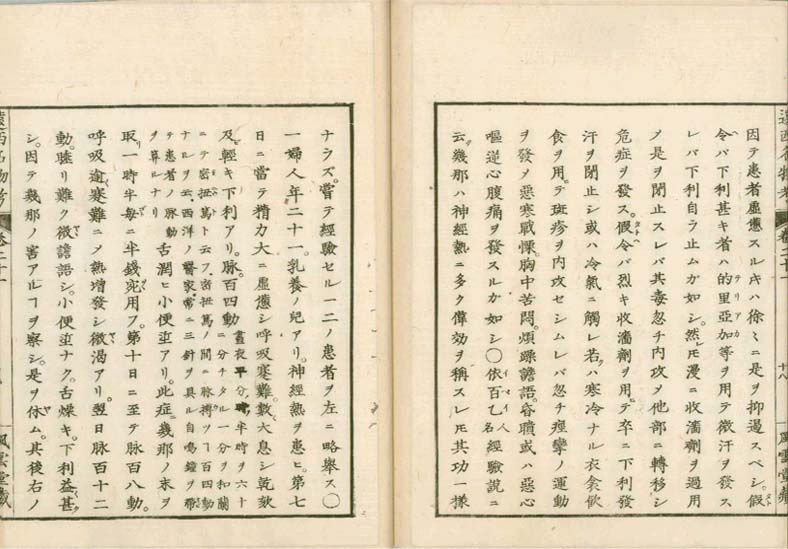 因テ患者虛憊スルキハ徐々ニ是ヲ抑遏スベシ。假
令ハ下利甚キ者ハ的里亞加等ヲ用テ微汗ヲ發ス
レバ下利自ラ止ムカ如シ。然レ𪜈漫ニ收澁劑ヲ過用
〆是ヲ閉止スレバ其毒忽チ内攻〆他部ニ轉移シ
危症ヲ發ス。假令バ烈キ收澁劑ヲ用テ卒ニ下利發
汗ヲ閉止シ或ハ冷氣ニ觸レ若ハ寒冷ナル衣衾飮
食ヲ用テ斑疹ヲ内攻セシムレバ忽チ痙攣ノ運動
ヲ發シ惡寒戰慄。胸中苦悶。煩躁譫語。昏瞶或ハ惡心
嘔逆心腹痛ヲ發スルカ如シ〇依百乙人名經驗説ニ
云幾那ハ神經熱ニ多ク偉効ヲ稱スレ𪜈其功一樣
ナラズ。嘗テ經驗セル一二ノ患者ヲ左ニ略舉ス〇
一婦人年二十一。乳養ノ兒アリ。神經熱ヲ患ヒ。第七
日ニ當テ精力大ニ虛憊シ呼吸寒難。數大息シ乾欬
及輕キ下利アリ。脉百四動晝夜平分ノ時半時ヲ六十
ニ分チタル一分ヲ和蘭
ニテ密扭篤ト云フ密扭篤ノ間ニ脉搏ツ丁百四動
ナルヲ云西洋ノ醫家常ニ三針ヲ具ル自鳴鐘ヲ帶
テ患者ノ脉動
ヲ算ルナリ
舌潤ヒ小便並アリ。此症幾那ノ末ヲ
取一時半每ニ半錢宛用フ。第十日ニ至テ脉百八動。
呼吸逾寒難ニ〆熱增發シ微渴アリ。翌日脉百十二
動。睡リ難ク微譫語シ。小便並ナク。舌燥キ。下利益甚
シ。因テ幾那ノ害アルヿヲ察シ。是ヲ休ム。其後右ノ
遠西名物考
卷二十一
十八
風雲堂藏